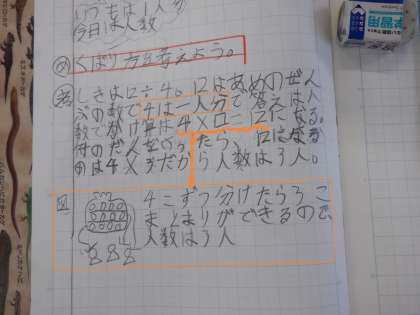 いつもは1人分
今日は人数
め くばり方を考えよう。
考 しきは12÷4。12はあめのぜん
ぶの数で4は一人分で答えは人
数でかけ算は4×□=12になる。
何のだんを
たら、12になる
のは4×3だから人数は3人。
図 4こずつ分けたら3こ
まとまりができるので
人数は3人
学習用